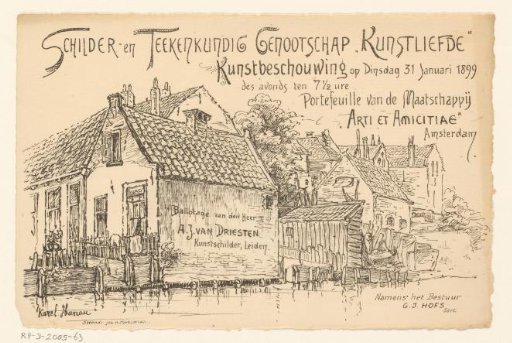 SCHILDER- en TEEKENKUNDIG GENOOTSCHAP „KUNSTLIEFDE"
Kunstbeschouwing op Dinsdag 31 Januari 1899
des avonds ten 7½ ure
Portefeuille van de Maatschappij
ARTI ET AMICITIAE"
Amsterdam
Ballotage van den Heer
A.J. VAN DRIESTEN
Kunstschilder, Leiden.
Namens het Bestuur
G.J. HOFS
Secr.
Karel
RP-P-2005-63